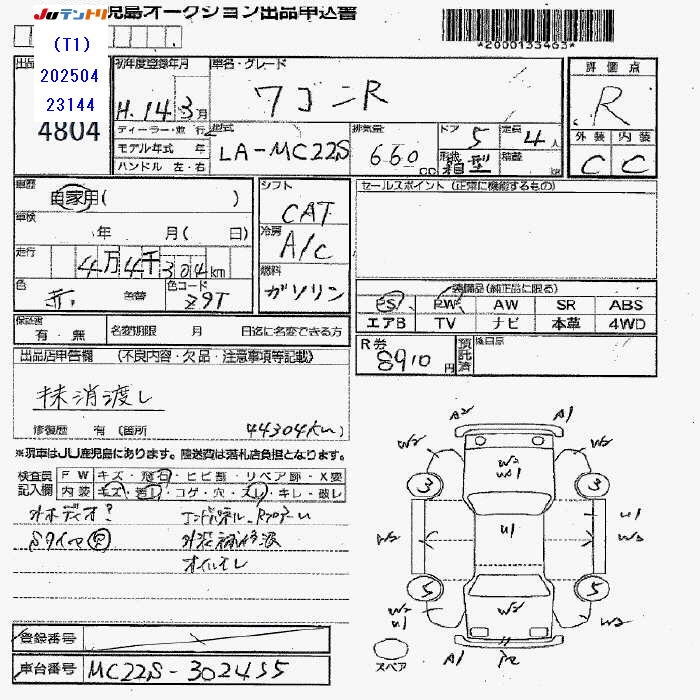 JUテントリ 鹿児島オークション出品申込書
*2000133463*
(T1)
202504
23144
4804
初年度登録年月
H.14 3月
車名・グレード
ワゴンR
評価点
R
ディーラー・並行
モデル年式 年
ハンドル 左・右
型式
LA-MC22S
排気量
660 cc
ドア 5
定員 4人
形状 箱型
積載
外装 内装
C C
車歴
自家用( )
車検
年 月( 日)
走行
4万4千304km
色 赤
色替
色コード Z9T
シフト
CAT
冷房
A/C
燃料
ガソリン
セールスポイント (正常に機能するもの)
装備品(純正品に限る)
PS PW AW SR ABS
エアB TV ナビ 本革 4WD
保証書
有・無
名変期限 月 日迄に名変できる方
R券
8910円
預託済
後日品
出品店申告欄 (不良内容・欠品・注意事項等記載)
抹消渡し
修復歴 有 (箇所 44304km)
※現車はJU鹿児島にあります。陸送費は落札店負担となります。
検査員記入欄
FW キズ・飛石・ヒビ割・リペア跡・X要
内装 キズ・汚し・コゲ・穴・スレ・キレ・破レ
オーディオ?
Sタイヤ
外装補修波
オイルモレ
A2 A1
W2 W2
W2
W1
3 3
U1
U1
W2 W3
5 5
W2
W2
U1
W2
A1
スペア
登録番号
車台番号 MC22S-302455